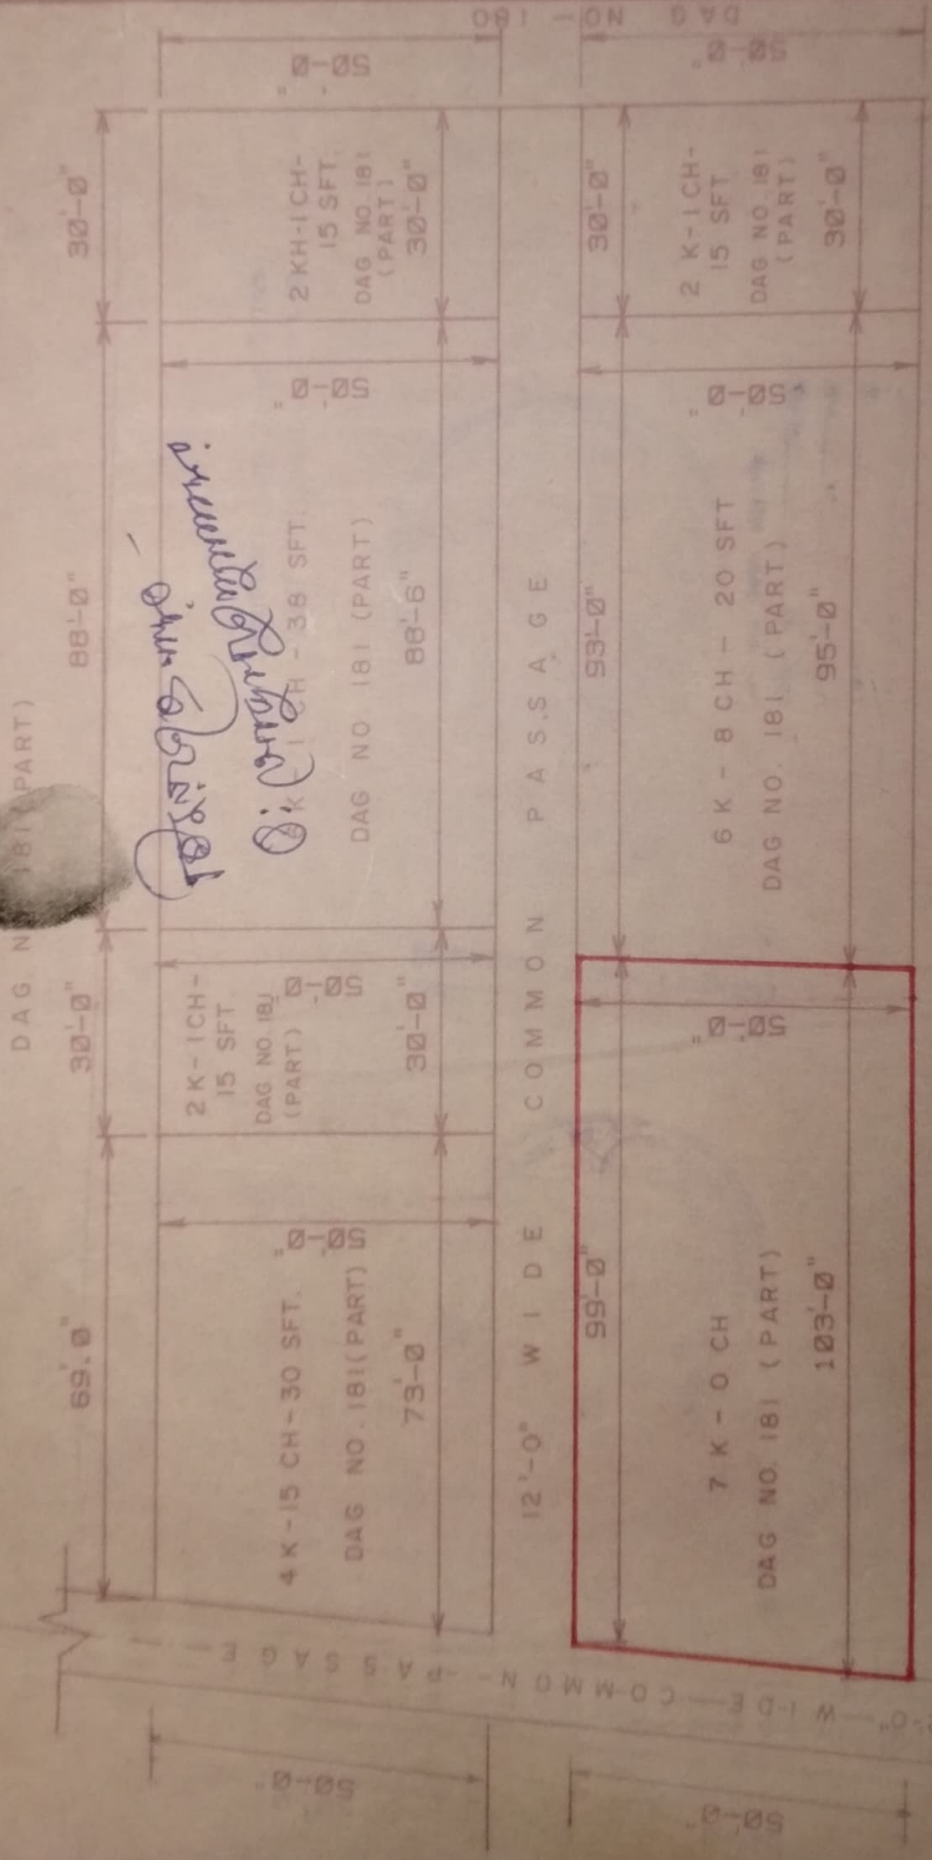 DAG N 181 (PART)
69'.0"
30'-0"
88'-0"
30'-0"
4 K-15 CH-30 SFT.
DAG NO. 181(PART)
73'-0"
50'-0"
2 K-1CH-
15 SFT
DAG NO. 181
(PART)
30'-0"
50'-0"
CH - 38 SFT.
DAG NO 181 (PART)
88'-6"
50'-0"
2 KH-1 CH-
15 SFT.
DAG NO. 181
(PART)
30'-0"
50'-0"
12'-0" WIDE COMMON PASSAGE
99'-0"
93'-0"
30'-0"
7 K - 0 CH
DAG NO. 181 (PART)
103'-0"
50'-0"
6 K - 8 CH - 20 SFT
DAG NO. 181 (PART)
95'-0"
50'-0"
2 K-1 CH-
15 SFT
DAG NO. 181
(PART)
30'-0"
50'-0"
DAG NO. 180
-0" WIDE COMMON PASSAGE
50'-0"
50'-0"